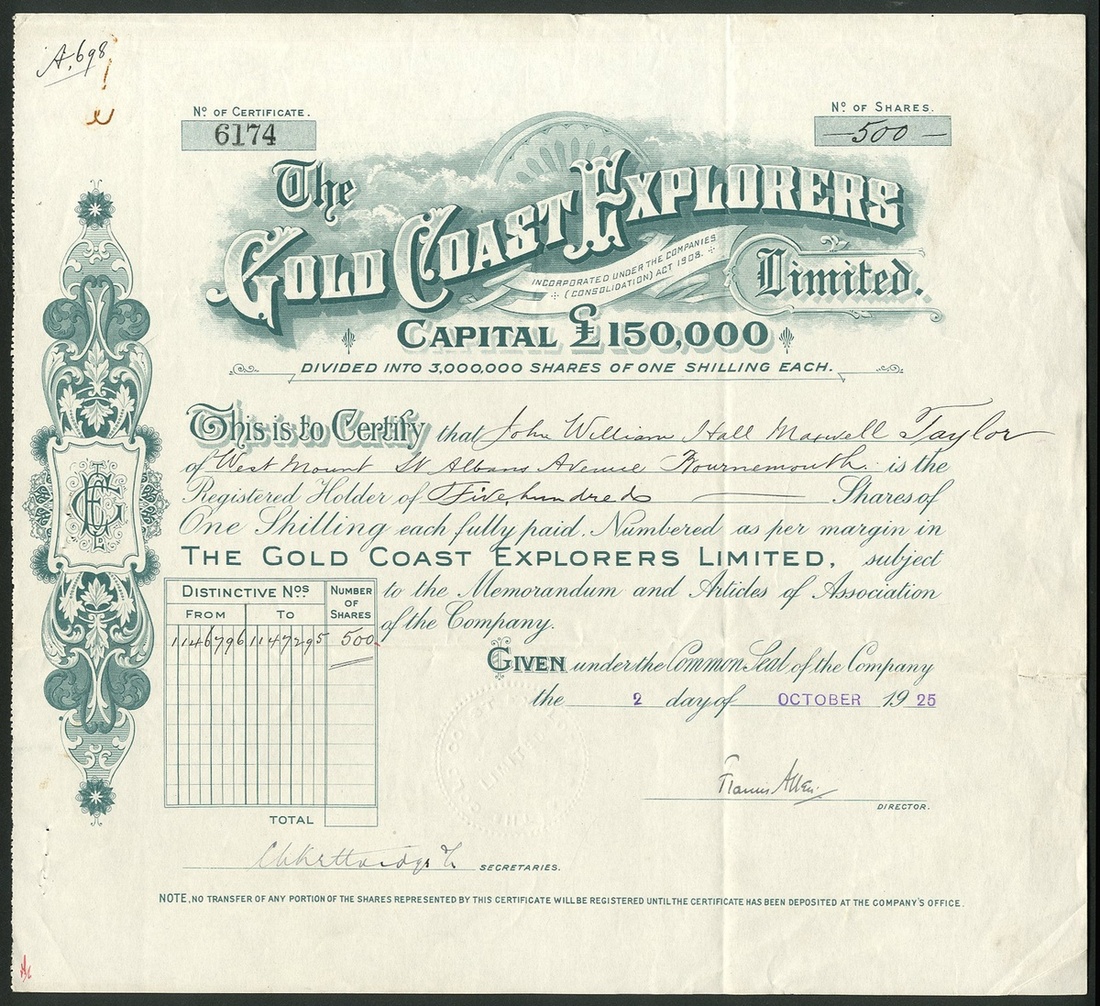 A.698
No. OF CERTIFICATE.
6174
No. OF SHARES.
—500—
The
GOLD COAST EXPLORERS
INCORPORATED UNDER THE COMPANIES
(CONSOLIDATION) ACT 1908.
Limited.
CAPITAL £150,000
DIVIDED INTO 3,000,000 SHARES OF ONE SHILLING EACH.
This is to Certify that John William Hall Maxwell Taylor
of West Mount St Albans Avenue Bournemouth. is the
Registered Holder of Five hundred Shares of
One Shilling each fully paid. Numbered as per margin in
THE GOLD COAST EXPLORERS LIMITED, subject
to the Memorandum and Articles of Association
of the Company.
DISTINCTIVE Nos.
NUMBER OF SHARES
FROM TO
1146796 1147295 500
GIVEN under the Common Seal of the Company
the 2 day of OCTOBER 1925
Francis Allen
DIRECTOR.
TOTAL
SECRETARIES.
NOTE, NO TRANSFER OF ANY PORTION OF THE SHARES REPRESENTED BY THIS CERTIFICATE WILL BE REGISTERED UNTIL THE CERTIFICATE HAS BEEN DEPOSITED AT THE COMPANY'S OFFICE.